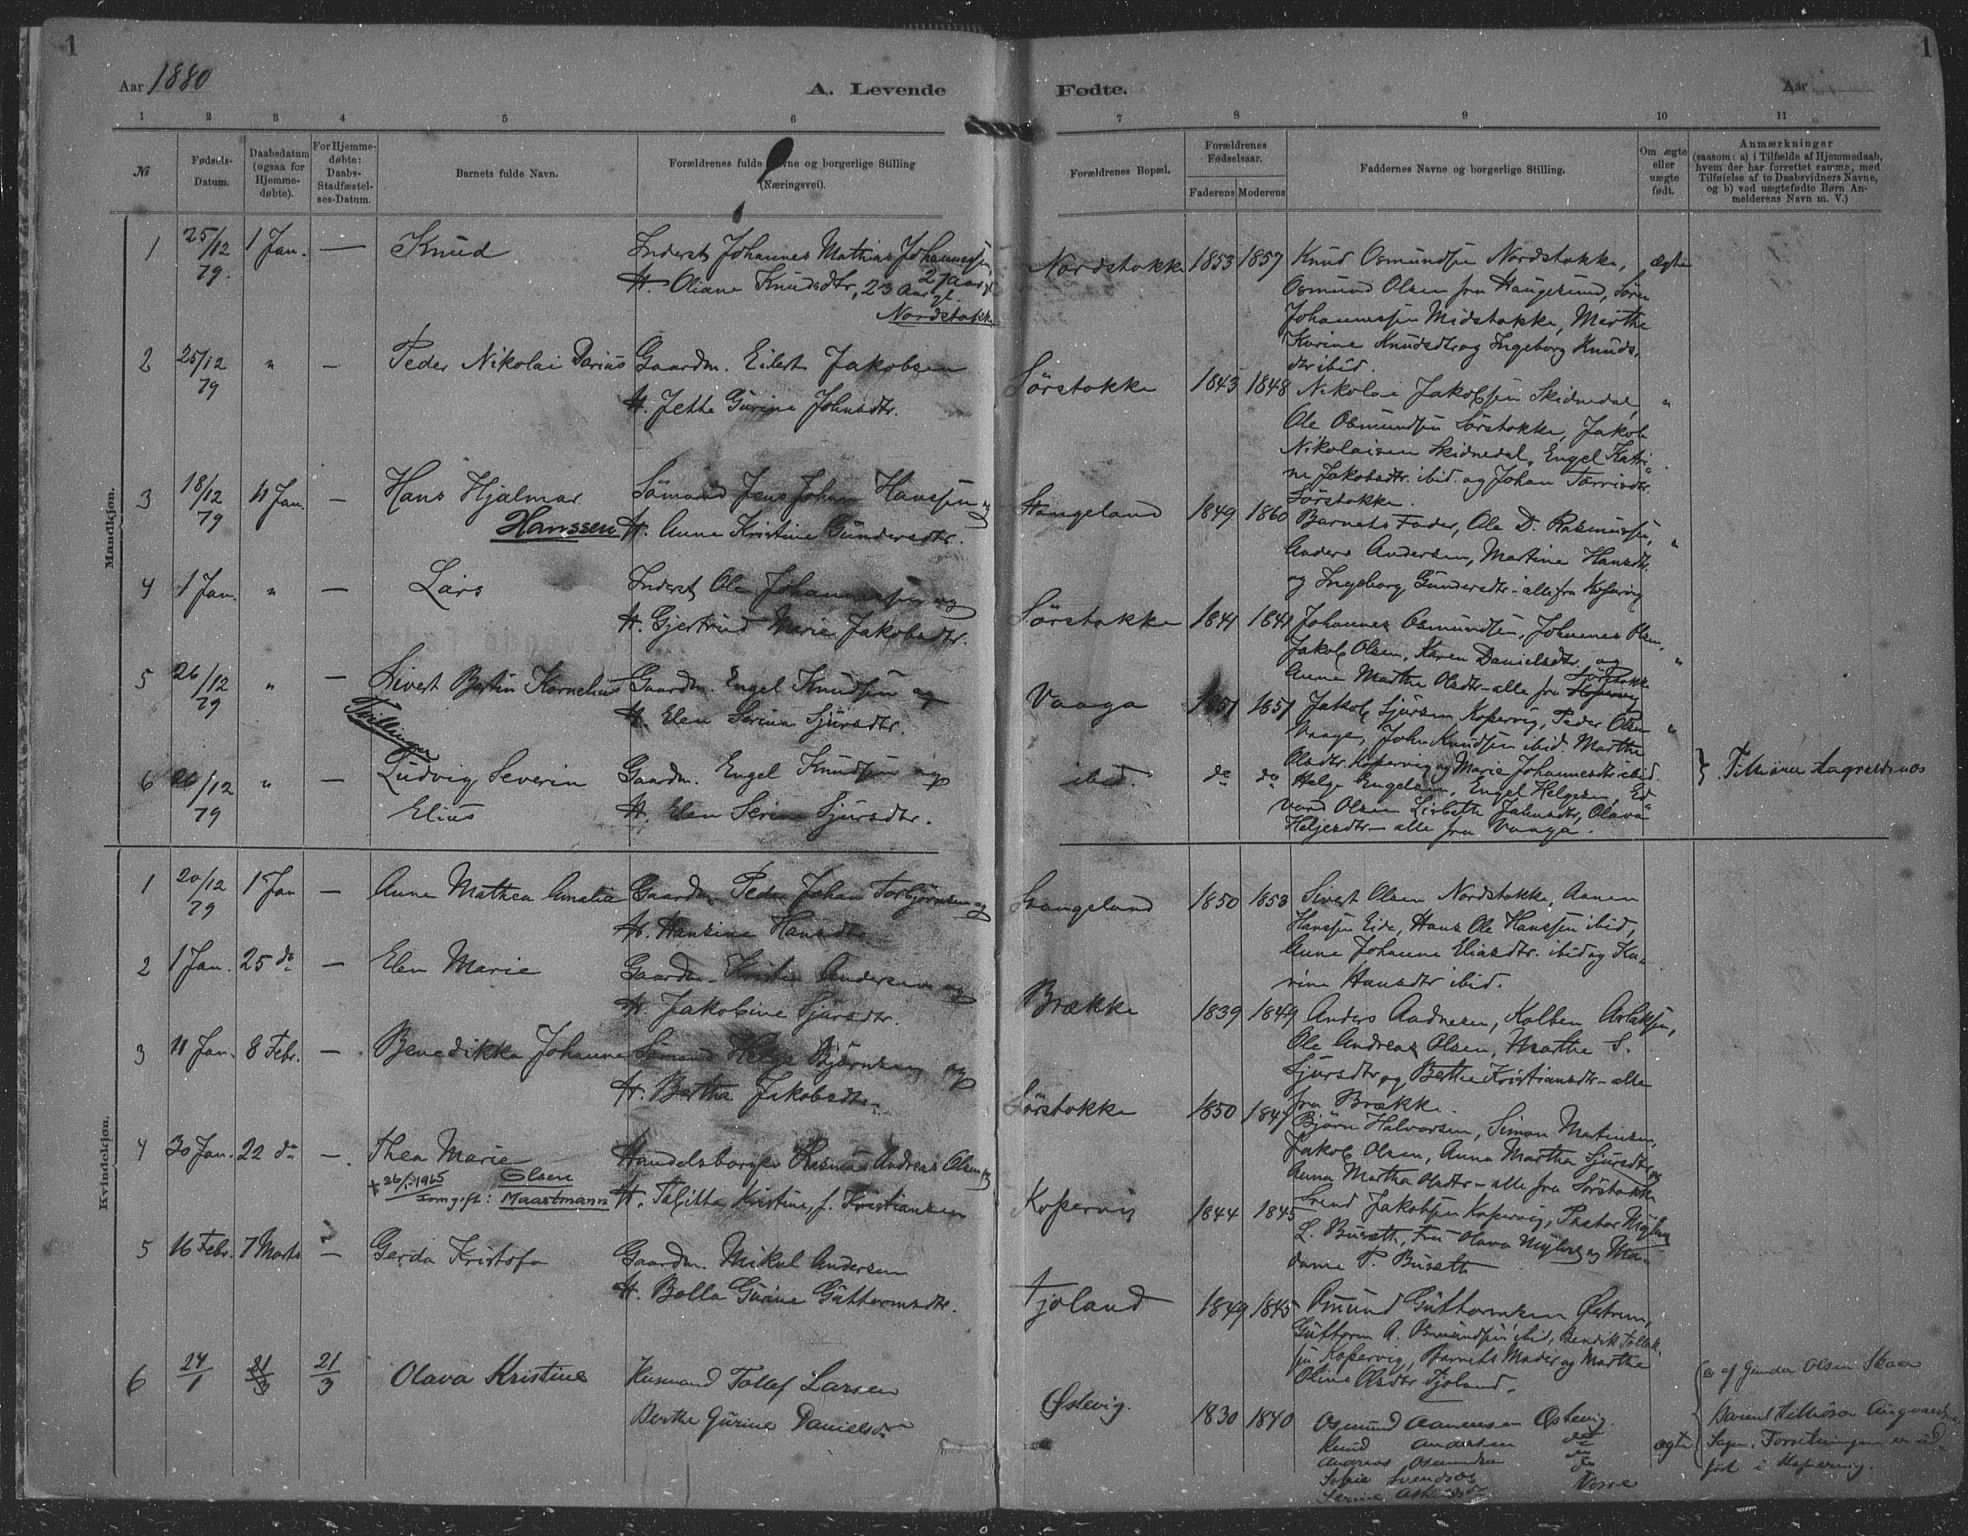 1
Aar 1880
A. Levende
1 2 3 4 5 6
No
Fødsels-Datum.
Daabsdatum (ogsaa for Hjemmedøbte).
For Hjemmedøbte: Daabs-Stadfæstelses-Datum.
Barnets fulde Navn.
Forældrenes fulde Navne og borgerlige Stilling (Næringsvei).
Mandkjøn.
1 25/12 79. 1 Jan. — Knud
Inderst Johannes Mathias Johannessen, 27 Aar gl.
H. Oliane Knudsdtr, 23 Aar gl.
Nordstokke
2 25/12 79 " — Peder Nikolai Darius
Gaardm. Eilert Jakobsen
H. Jette Gurine Johnsdtr.
3 18/12 79 11 Jan. — Hans Hjalmar
Hanssen
Sømand Jens Johan Hanssen og
H. Anne Kristine Gundersdtr.
4 1 Jan. " — Lars
Inderst Ole Johannessen og
H. Gjertrud Marie Jakobsdtr.
5 26/12 79 " — Sivert Bertin Kornelius
Tvillinger
Gaardm. Engel Knudsen og
H. Elen Serina Sjursdtr.
6 26/12 79 " — Ludvig Severin
Elius
Gaardm. Engel Knudsen og
H. Elen Serina Sjursdtr.
Kvindekjøn.
1 20/12 79 1 Jan — Anne Mathea Amalia
Gaardm. Peder Johan Torbjørnsen og
H. Hansine Hansdtr.
2 1 Jan. 25 do — Elen Marie
Gaardm. Kristen Andersen og
H. Jakobine Sjursdtr.
3 11 Jan. 8 Febr. — Benedikka Johanne
Sømand Helge Bjørnsen og
H. Bertha Jakobsdtr.
4 30 Jan. 22 do — Thea Marie
Olsen
1965
Maastmann
Handelsborger Rasmus Andreas Olsen og
H. Talitha Kristine, f. Kristiansen
5 16 Febr. 7 Marts — Gerda Kristofa
Gaardm. Mikal Andersen
H. Bolla Gurine Guttormsdtr.
6 24/1 21/3 21/3 Olava Kristine
Husmand Tollef Larsen
Berthe Gurine Danielsdr
1
Fødte.
Aar
7 8 9 10 11
Forældrenes Bopæl.
Forældrenes Fødselsaar.
Faderens Moderens
Faddernes Navne og borgerlige Stilling.
Om ægte eller uægte født.
Anmærkninger
(saasom: a) i Tilfælde af Hjemmedaab, hvem der har forrettet samme, med Tilføielse af to Daabsvidners Navne, og b) ved uægtefødte Børn Anmelderens Navn m. V.)
Nordstokke 1853 1857 Knud Osmundsen Nordstokke, ægte
Osmund Olsen fra Haugesund, Søren
Johannessen Midstokke, Marthe
Karine Knudsdtr og Ingeborg Knuds-
dtr ibid.
Sørstokke 1843 1848 Nikolai Jakobsen Skidnedal, "
Ole Osmundsen Sørstokke, Jakob
Nikolaisen Skidnedal, Engel Katri-
ne Jakobsdtr. ibid. og Johan
Sørstokke.
Stangeland 1849 1860 Barnets Fader, Ole D. Rasmussen, "
Anders Andersen, Martine Hansdtr.
og Ingeborg Gundersdtr - alle fra Kopervig
Sørstokke 1841 1841 Johannes Osmundsen, Johannes Olsen,
Jakob Olsen, Karen Danielsdtr. og "
Anne Marthe Olsdtr - alle fra Kopervig Sørstokke
Vaaga 1851 1851 Jakob Sjursen Kopervig, Peder Olsen "
Vaage, John Knudsen ibid. Marthe
Olsdtr. Kopervig og Marie Johannesdtr ibid.
ibid. do do Helge Engelsen, Engel Helgesen, Ed-
vard Olsen Lisbeth Jahnsdtr, Olava
Heljesdtr - alle fra Vaaga.
Stangeland 1850 1853 Sivert Olsen Nordstokke, Aanen
Hanssen Eide, Hans Ole Hanssen ibid,
Anne Johanne Eliasdtr. ibid og Ka-
rine Hansdtr ibid.
Brække 1839 1849 Anders Aadnesen, Kolben Aslaksen,
Ole Andreas Olsen, Marthe S.
Sjursdtr og Berthe Kristiansdtr - alle
fra Brække.
Sørstokke 1850 1847 Bjørn Halvorsen, Simon Martinsen,
Jakob Olsen, Anna Martha Sjursdtr og
Anna Martha Olsdtr - alle fra Sørstokke
Kopervig 1844 1845 Svend Jakobsen Kopervig, Pastor
L. Busett, Fru Olava og Ma-
dame P. Busett
Tjoland 1849 1845 Osmund Guttormsen Østrem,
Guttorm A. Osmundsen ibid, Bendik
Kopervig, Barnets Moder og Marthe
Oline Olsdtr Tjoland.
Østevig. 1830 1840 Osmund Aanensen Østevig. ægte
Knud Andersen do
Andreas Osmundsen do
Sofie Svendsdr do
Serine
af Gunder Olsen